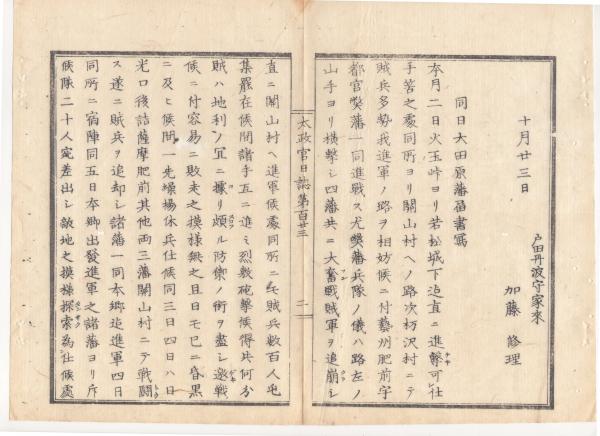 十月廿三日
戸田丹波守家來
加藤 修理
同日大田原藩届書寫
本月二日火玉峠ヨリ若松城下迠直ニ進撃可仕
手筈之處同所ヨリ關山村ヘノ路次栃沢村ニテ
賊兵多勢我進軍ノ路ヲ相妨候ニ付藝州肥前宇
都宮弊藩一同進戦ス尤弊藩兵隊ノ儀ハ路左ノ
山手ヨリ横撃シ四藩共ニ大奮戦賊軍ヲ追崩シ
太政官日誌第百廿三
二
直ニ關山村ヘ進軍候處同所ニモ賊兵数百人屯
集罷在候間諸手互ニ進ミ烈敷砲撃候得共何分
賊ハ地利ノ冝ニ據リ頗ル防禦ノ術ヲ盡シ邀戦
候ニ付容易ニ敗走之模様無之且日モ已ニ昏黒
ニ及ヒ候間一先繰揚休兵仕候同三日四日ハ日
光口後詰薩摩肥前其他両三藩關山村ニテ戦闘
ス遂ニ賊兵ヲ追却シ諸藩一同本郷迠進軍四日
同所ニ宿陣同五日本郷出發進軍之諸藩ヨリ斥
候隊二十人完差出シ敵地之摸様探索為仕候處